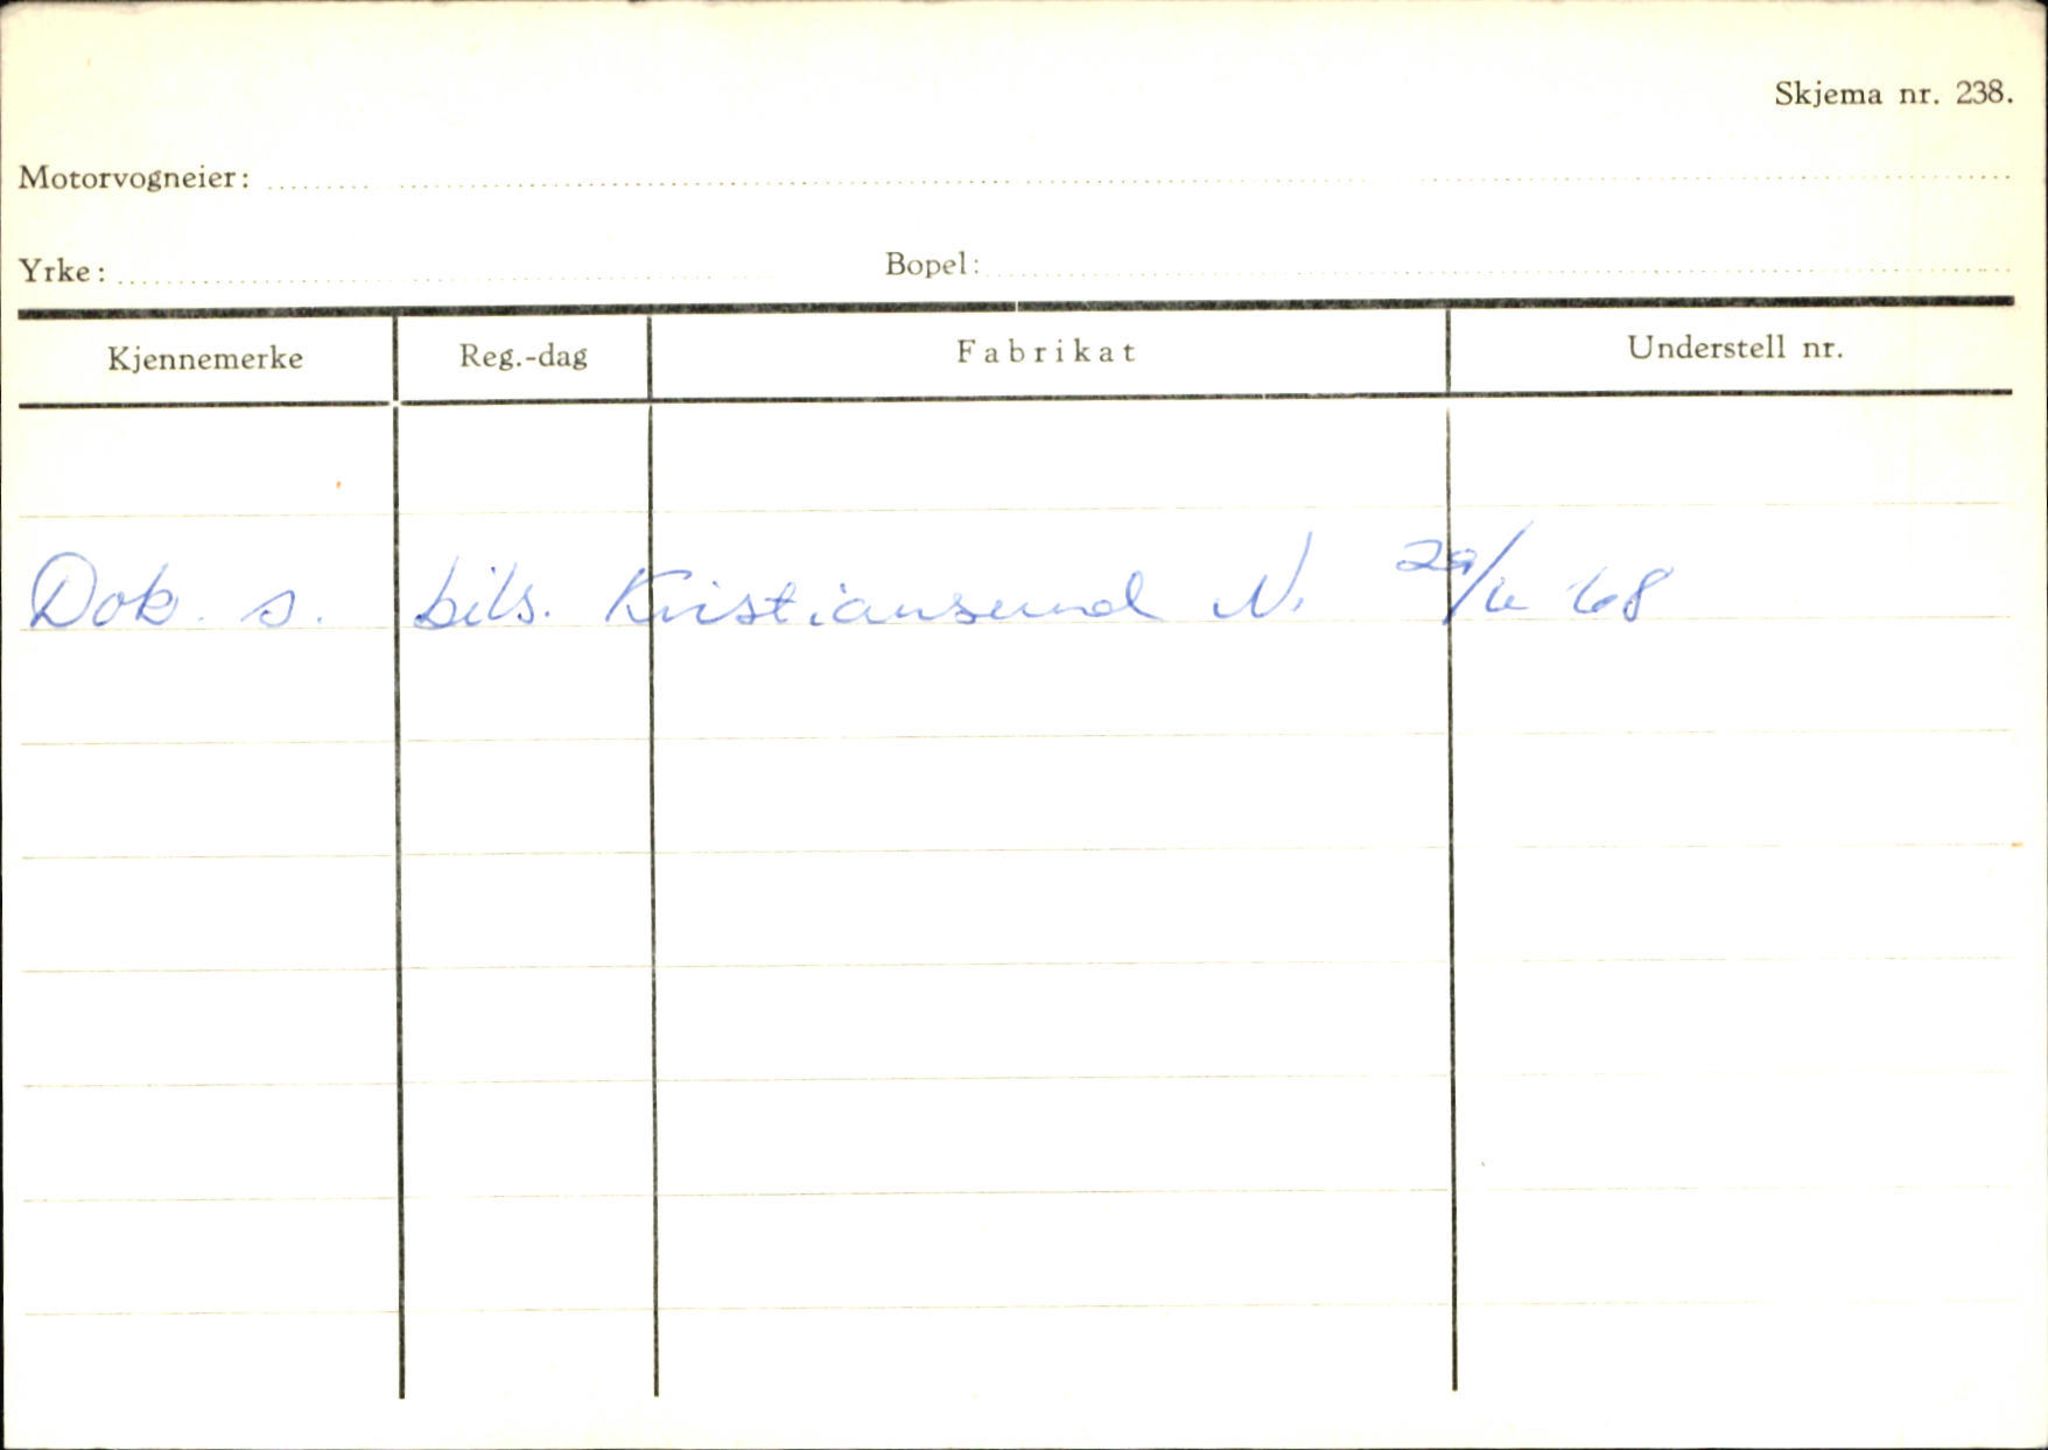 Skjema nr. 238.
Motorvogneier:
Yrke: Bopel:
Kjennemerke Reg.-dag Fabrikat Understell nr.
Dok. s. bils. Kristiansund N. 29/6 68